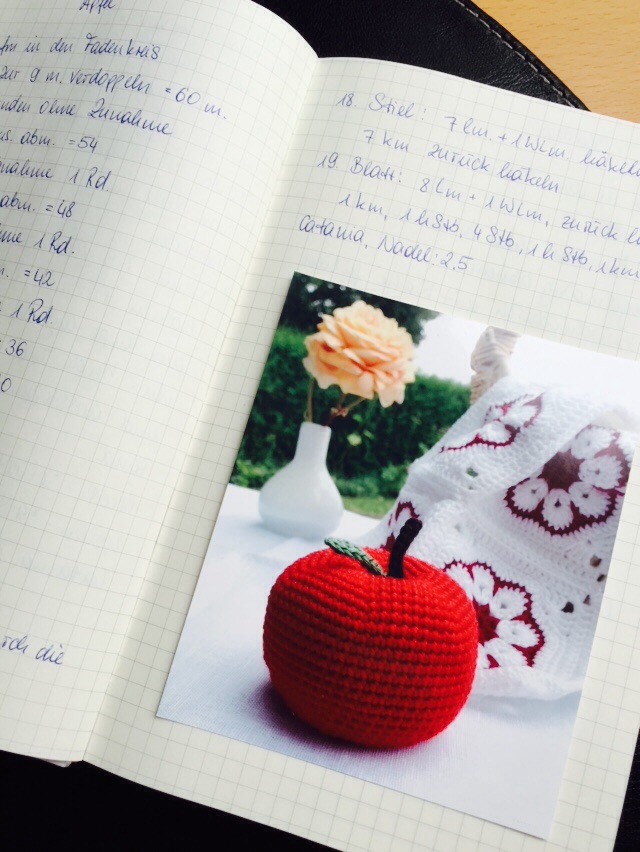 Apfel
in den Fadenkreis
zur 9 m. verdoppeln = 60 m.
nden ohne Zunahme
abm. = 54
nahme 1 Rd.
abm. = 48
me 1 Rd.
m. = 42
1 Rd
36
0
rch die
18. Stiel: 7 lm. + 1 Wlm. häkeln
7 km zurück häkeln
19. Blatt: 8 lm + 1 Wlm, zurück hä
1 km, 1 h Stb, 4 Stb, 1 h Stb, 1 km
Catania, Nadel: 2,5